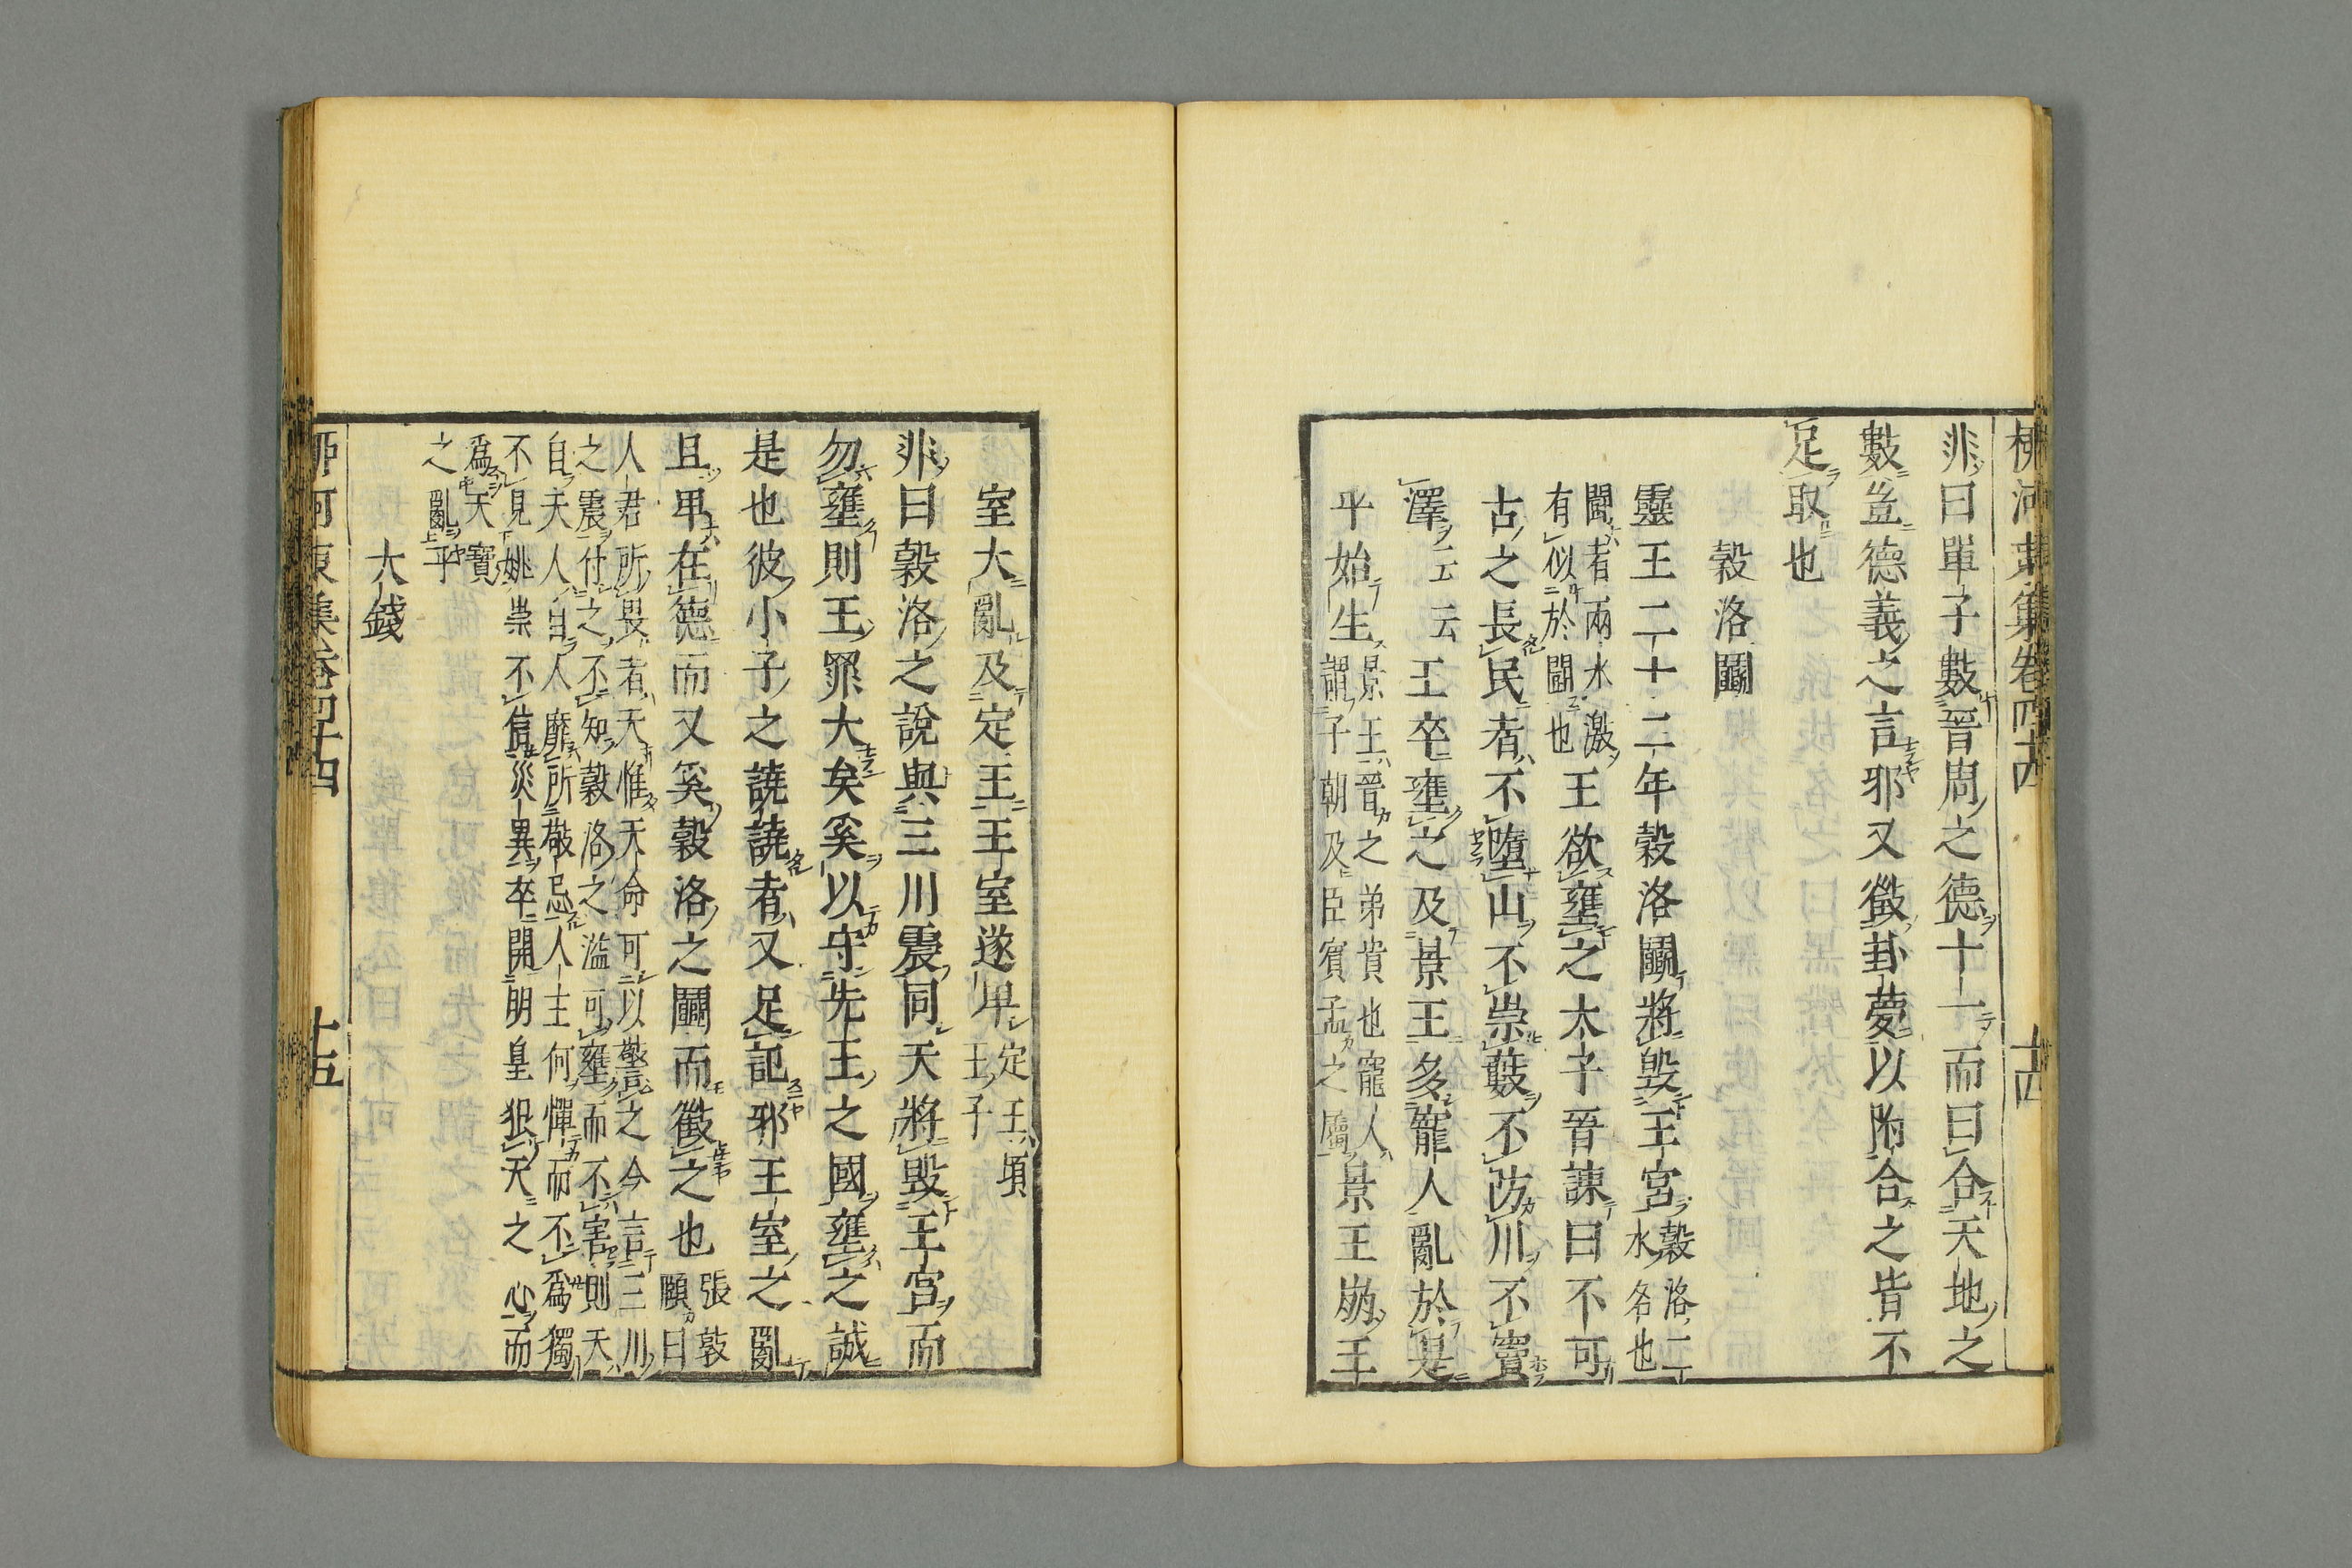 柳河東集卷四十四
十四
非曰單子數晉周之德十一而曰合天地之
數豈德義之言邪又徵卦夢以附合之皆不
足取也
穀洛鬭
靈王二十二年穀洛鬭將毀王宮穀洛二
水名也
鬪者兩水激
有似於鬪也王欲壅之太子晉諫曰不可
古之長民者不墮山不崇藪不防川不竇
澤云云王卒壅之及景王多寵人亂於是
平始生景王晉之弟貴也寵人
謂子朝及臣賓孟之屬景王崩王
室大亂及定王王室遂卑定王頃
王子
非曰穀洛之說與三川震同天將毀王宮而
勿壅則王罪大矣奚以守先王之國壅之誠
是也彼小子之譊譊者又足記邪王室之亂
且卑在德而又奚穀洛之鬭而徵之也張敦
頤曰
人君所畏者天惟天命可以警之今言三川
之震付之不知穀洛之濫可壅而不害則天
自天人自人靡所敬忌人主何憚而不爲獨
不見姚崇不信災異卒開明皇狠天之心而
爲天寶
之亂乎
大錢
柳河東集卷四十四
十五